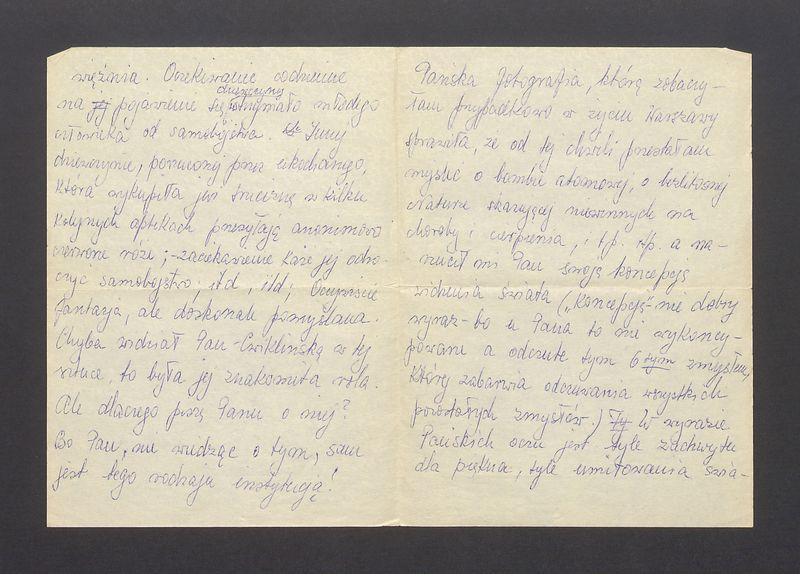 więźnia. Oczekiwanie codzienne
na jej pojawienie się dziewczyny wstrzymało młodego
człowieka od samobójstwa. Innej
dziewczynie, porzuconej przez ukochanego,
która wykupiła już truciznę w kilku
kolejnych aptekach przesyłają anonimowo
czerwone róże; - zaciekawienie każe jej odro-
czyć samobójstwo; itd, itd; Oczywiście
fantazja, ale doskonale pomyślana.
Chyba widział Pan - Ćwiklińską w tej
sztuce, to była jej znakomita rola.
Ale dlaczego piszę Panu o niej?
Bo Pan, nie wiedząc o tym, sam
jest tego rodzaju instytucją!
Pańska fotografia, którą zobaczy-
łam przypadkowo w Życiu Warszawy
sprawiła, że od tej chwili przestałam
myśleć o bombie atomowej, o bezlitosnej
Naturze skazującej niewinnych na
choroby i cierpienia, i t.p. itp. a na-
rzucił mi Pan swoją koncepcję
widzenia świata („Koncepcja" - nie dobry
wyraz - bo u Pana to nie wykoncy-
powane a odczute tym 6 tym zmysłem,
który zabarwia odczuwania wszystkich
pozostałych zmysłów.) W wyrazie
Pańskich oczu jest tyle zachwytu
dla piękna, tyle umiłowania świa-